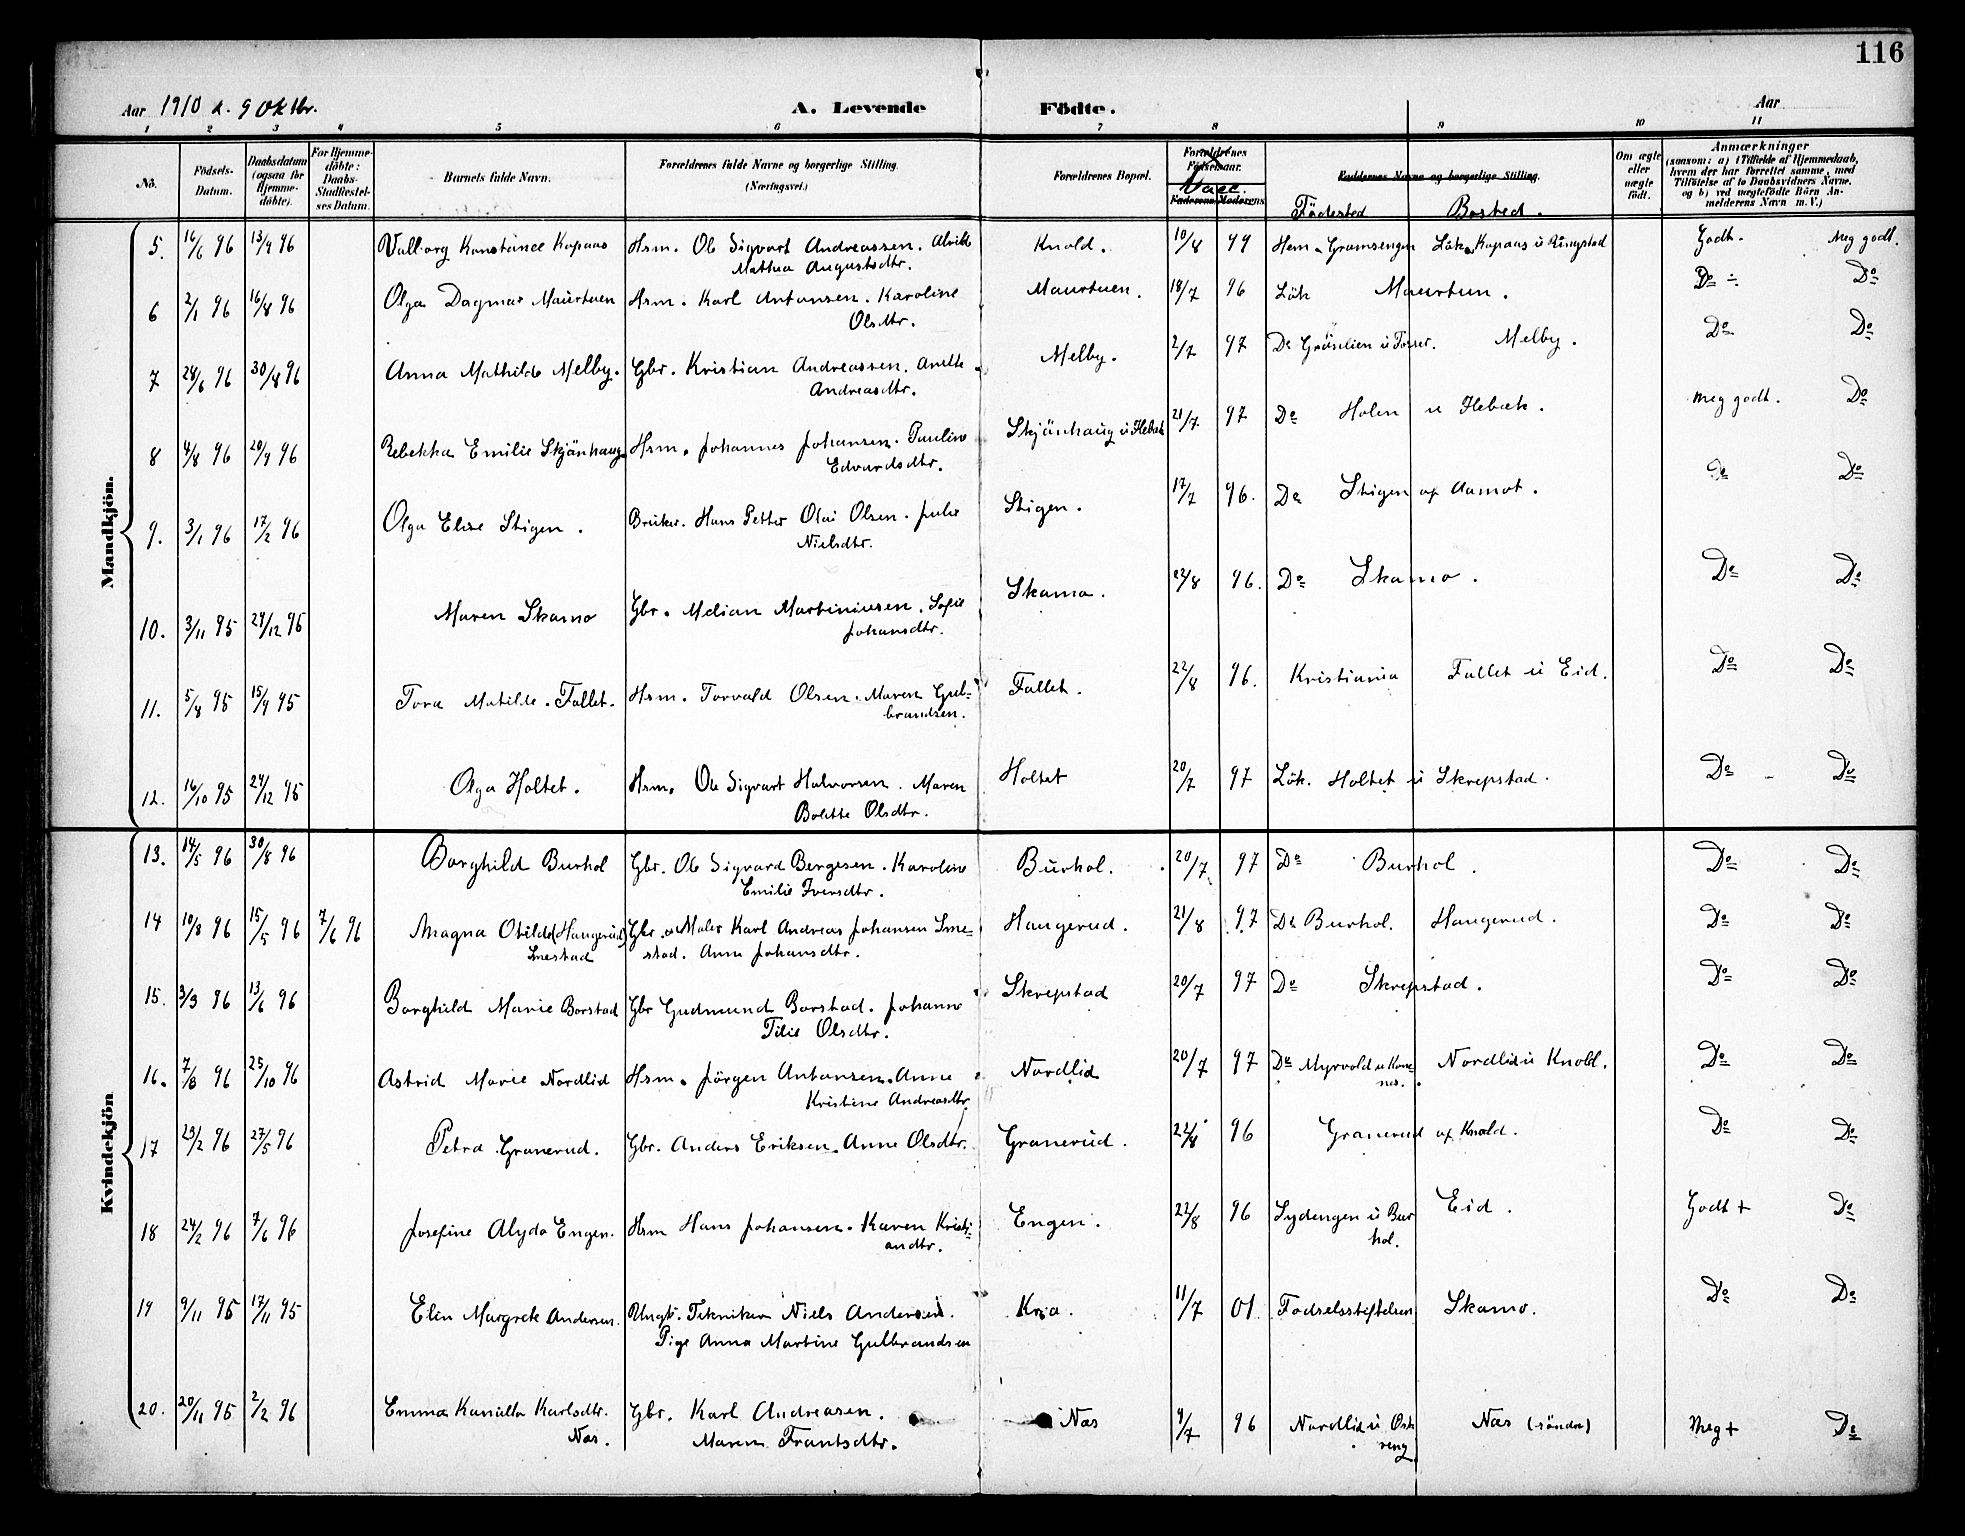 116
Aar 1910 d. 9 Oktbr. A. Levende Födte. Aar
1 2 3 4 5 6 7 8 9 10 11
No. Födsels-Datum. Daabsdatum (ogsaa for Hjemme-döbte). For Hjemme-döbte: Daabs-Stadfæstel-ses Datum. Barnets fulde Navn. Forældrenes fulde Navne og borgerlige Stilling. (Næringsvei.) Forældrenes Bopæl. Forældrenes Födselsaar. Faderens Moderens Vacc. Faddernes Navne og borgerlige Stilling. Om ægte eller uægte födt. Anmærkninger
(saasom: a) i Tilfælde af Hjemmedaab, hvem der har forrettet samme, med Tilföielse af to Daabsvidners Navne, og b) ved uegtefödte Börn An-melderens Navn m. V.)
Födested Bosted.
Mandkjön.
5. 16/6 96 13/9 96 Valborg Konstance Kopaas Hsm. Ole Sigvart Andreassen. Alvilde Knold. 10/8 99 Hem. Gramsengen Lök. Kopaas u Ringstad Godt. Meg godt.
Mathea Augustsdtr.
6 2/1 96 16/8 96 Olga Dagmar Maurtuen Hsm. Karl Antonsen. Karoline Maurtuen. 18/7 96 Lök Maurtun. Do ÷ Do
Olsdtr.
7 28/6 96 30/8 96 Anna Mathilde Melby. Gbr. Kristian Andreassen. Anette Melby. 2/7 97 Do Grönlien u Tosser. Melby. Do Do
Andreasdtr.
8 4/8 96 20/9 96 Rebekka Emilie Skjönhaug Hsm. Johannes Johansen. Pauline Skjönhaug u Hebæk 21/7 97 Do Holen u Hebæk. Meg godt. Do
Edvardsdtr.
9. 3/1 96 17/2 96 Olga Elise Stigen. Bruker. Hans Petter Olai Olsen. Julie Stigen. 17/7 96. Do Stigen af Aamot. Do Do
Nielsdtr.
10. 3/11 95 29/12 95 Maren Skamo Gbr. Melian Martiniusen. Sofie Skamo. 22/8 96. Do Skamo. Do Do
Johansdtr.
11. 5/8 95 15/9 95 Tora Matilde. Fallet. Hsm. Torvald Olsen. Maren Gul- Fallet. 22/8 96. Kristiania Fallet u Eid. Do Do
brandsen.
12. 16/10 95 24/12 95 Olga Holtet. Hsm. Ole Sigvart Halvorsen. Maren Holtet 20/7 97 Lök. Holtet u Skrepstad. Do Do
Bolette Olsdtr.
Kvindekjön
13. 14/5 96 30/8 96 Borghild Burhol Gbr. Ole Sigvard Bergesen. Karoline Burhol. 20/7 97 Do Burhol. Do Do
Emilie Iversdtr.
14 10/3 96 15/5 96 7/6 96 Magna Otilde (Haugerud) Gbr. og Maler Karl Andreas Johansen Sme- Haugerud. 21/8 97 Do Burhol. Haugerud. Do Do
Smestad stad. Anna Johansdtr.
15. 3/3 96 13/6 96 Borghild Marie Borstad Gbr Gudmund Borstad. Johanne Skrepstad 20/7 97 Do Skrepstad. Do Do
Tilie Olsdtr.
16. 7/8 96 25/10 96 Astrid Marie Nordlid Hsm. Jörgen Antonsen. Anne Nordlid 20/7 97 Do Myrvold u Nordlid u Knold. Do Do
Kristine Andreasdtr
17 23/2 96 27/5 96 Petra Granerud. Gbr. Anders Eriksen. Anne Olsdtr. Granerud. 22/8 96 Granerud af Knold. Do Do
18 24/2 96 7/6 96 Josefine Alyda Engen. Hsm Hans Johansen. Karen Kristi- Engen. 22/8 96 Sydengen u Bur Eid. Godt + Do
andtr. hol.
19 9/11 95 17/11 95 Elin Margrete Andersen. Ungk. Tekniker Niels Andersen. Kria. 11/7 01 Födselsstiftelsen Skamo. Do Do
Pige Anna Martine Gulbrandsen
20. 20/11 95 2/2 96 Emma Kamilla Karlsdtr. Gbr. Karl Andreasen. Næs 9/7 96 Nordlid u Næs (söndre) Meg + Do
Næs. Maren Frantsdtr.